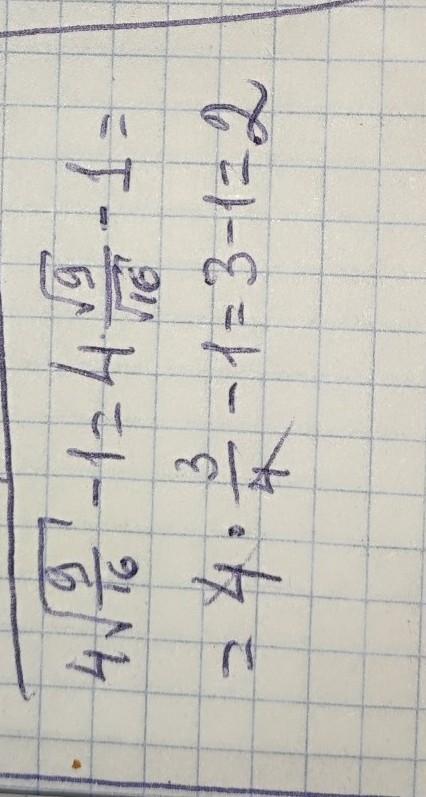 4√9/16 - 1 = 4 · √9/√16 - 1 =
= 4 · 3/4 - 1 = 3 - 1 = 2